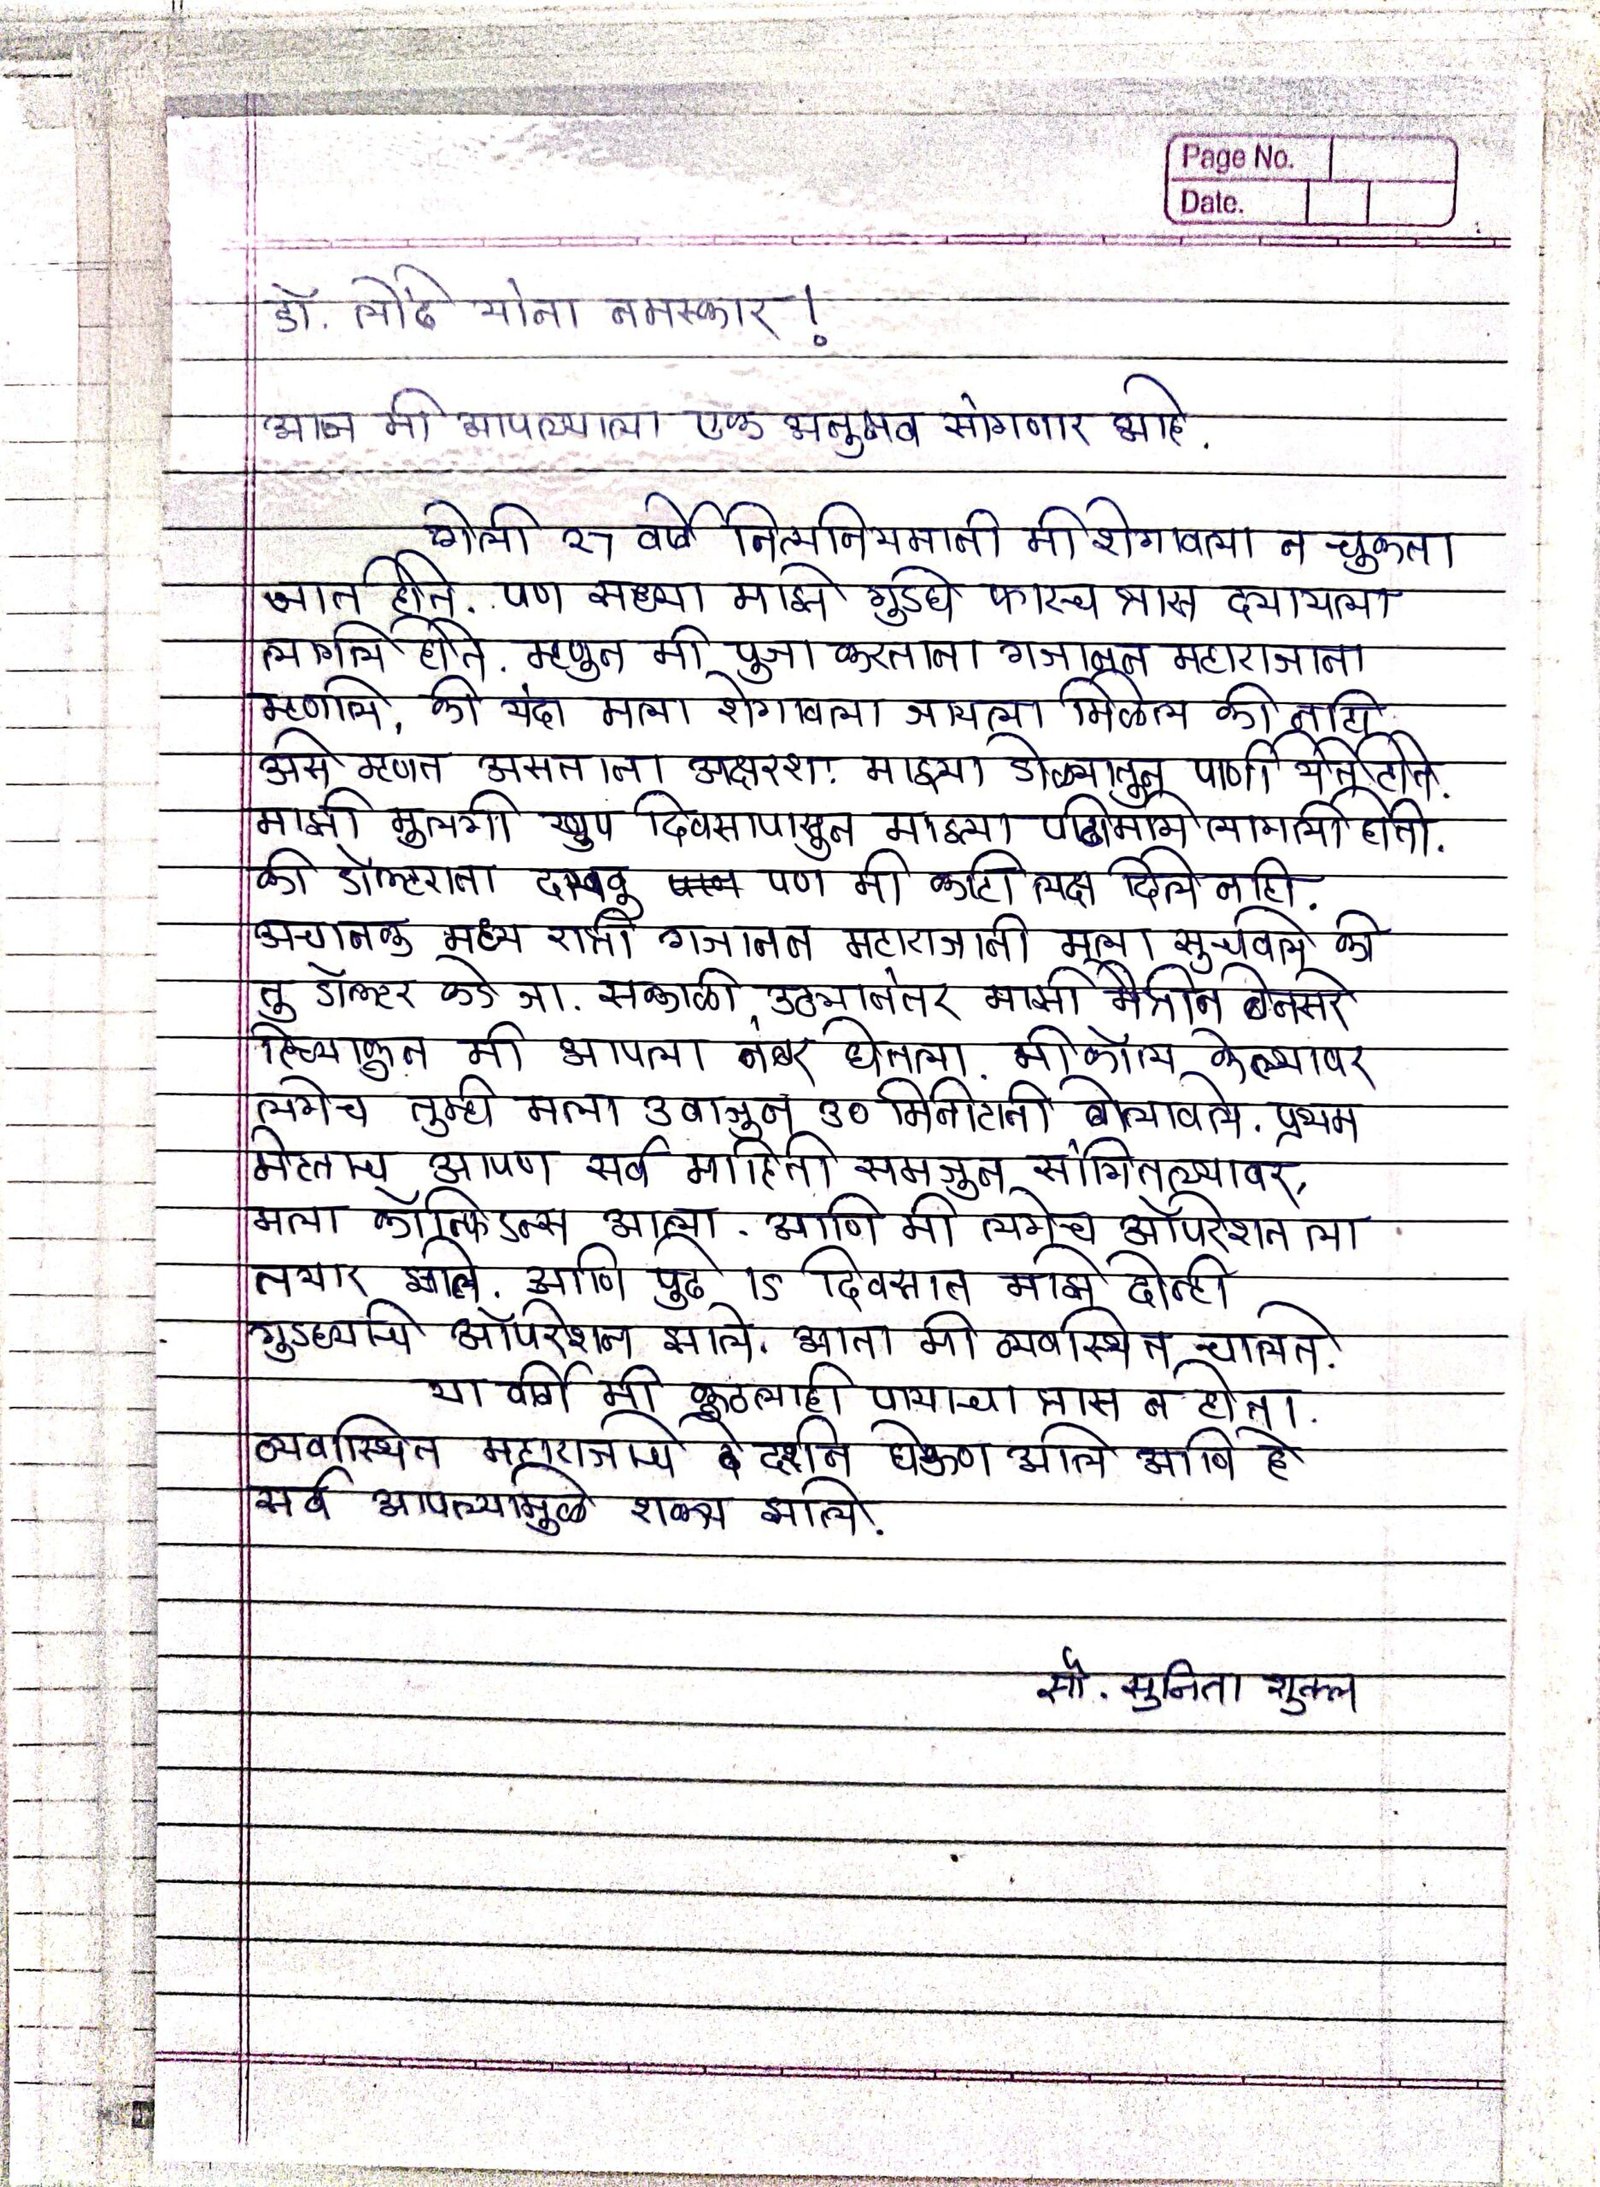 Page No.
Date.
डॉ. लोंढे यांना नमस्कार !
आज मी आपल्याला एक अनुभव सांगणार आहे.
गेली २७ वर्षे नित्यनियमानी मी शेगावला न चुकता
जात होते. पण सध्या माझे गुडघे फारच त्रास द्यायला
लागले होते. म्हणुन मी पुजा करताना गजानन महाराजाना
म्हणाले, की यंदा मला शेगावला जायला मिळेल की नाही
असे म्हणत असताना अक्षरशः माझ्या डोळ्यातुन पाणी येत होते.
माझी मुलगी खुप दिवसापासुन माझ्या पाठीमागे लागली होती.
की डॉक्टराना दाखवु पण मी काही लक्ष दिले नाही.
अचानक मध्य रात्री गजानन महाराजानी मला सुचविले की
तु डॉक्टर कडे जा. सकाळी उठल्यानंतर माझी मैत्रीन बेनसरे
हिच्याकुन मी आपला नंबर घेतला. मी कॉल केल्यावर
लगेच तुम्ही मला ३ वाजुन ३० मिनीटानी बोलावले. प्रथम
भेटताच आपण सर्व माहिती समजुन सांगितल्यावर,
मला कॉन्फिडन्स आला. आणि मी लगेच ऑपरेशन ला
तयार झाले. आणि पुढे 15 दिवसात माझे दोन्ही
गुडघ्याचे ऑपरेशन झाले. आता मी व्यवस्थित चालते.
या वर्षी मी कुठलाही पायाचा त्रास न होता.
व्यवस्थित महाराजांचे दर्शन घेऊण आले आणि हे
सर्व आपल्यामुळे शक्य झाले.
सौ. सुनिता शुक्ल